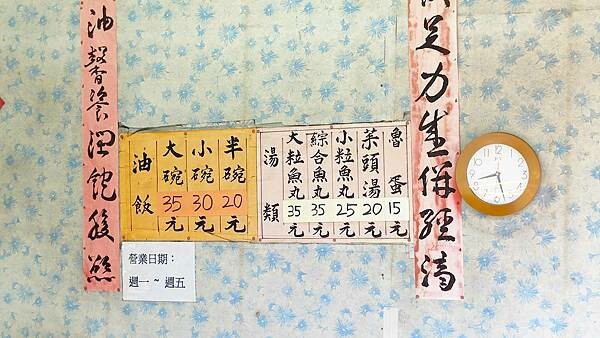 油馨飱溫飽飯熊
油飯
大碗 35元
小碗 30元
半碗 20元
湯類
大粒魚丸 35元
綜合魚丸 35元
小粒魚丸 25元
菜頭湯 20元
魯蛋 15元
足力生併經濟
營業日期：
週一 ~ 週五